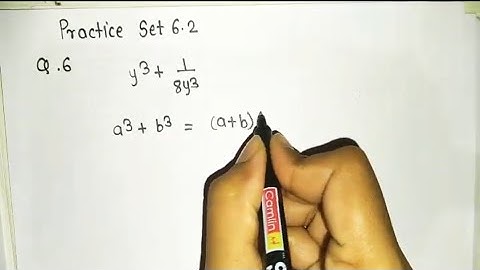 Practice Set 6.2
Q.6 y³ + 1/8y³
a³ + b³ = (a+b)
Camlin